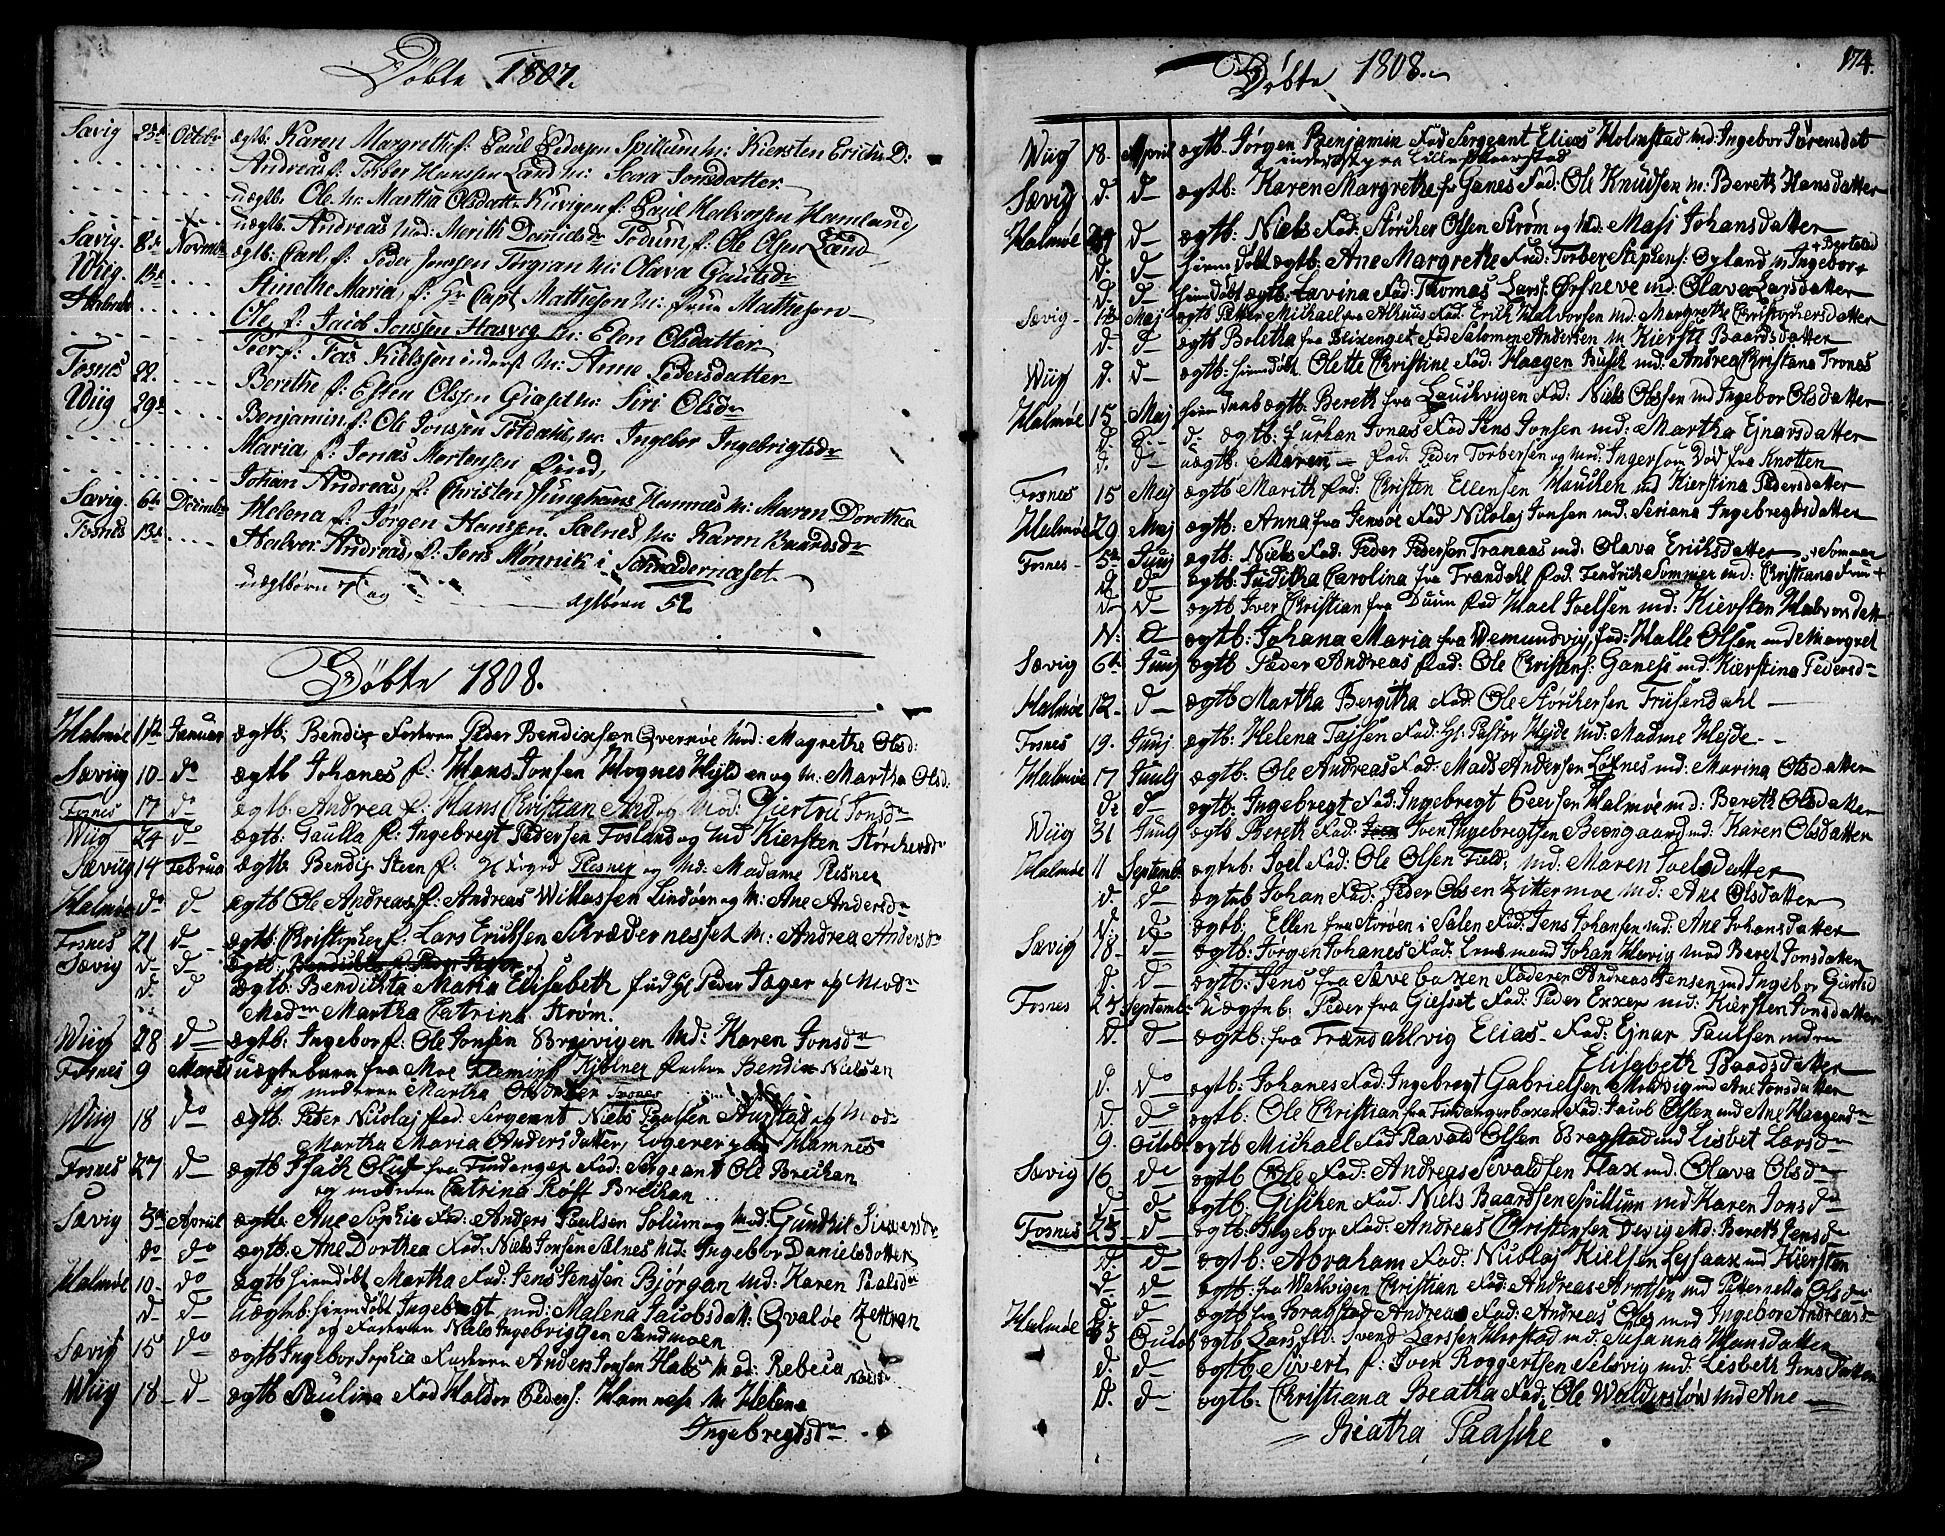 Døbte 1807.
Sævig 23de Octobr ægtb: Karen Margrethe f: Paul Pedersen Spillum m: Kiersten Erichs D:
Andreas f: Torber Hanssen Land m: Sara Jonsdatter
uægtb. Ole m: Martha Olsdatr Kuvigen f: Paul Halvorsen Hamland,
uægtb. Andreas mod: Merith f: Ole Olsen Land
Sævig 8de Novembr ægtb: Carl f: Peder Jonssen Torgran m: Olava Gautsdr
Wiig 15de Anethe Maria, f: Hr Capt Mathesen m: frue Mathesen
Halmøe Ole f: Jacob Jonsen Hasvog m: Elen Olsdatter
Peer f: Tas Nielssen inderst m: Anne Pedersdatter
Fosnes 22. Berethe f: Esten Olssen m: Siri Olsdr
Wiig 29de Benjamin f: Ole Jonssen Totdahl m: Ingebor Ingebrigtsdr
Maria, f: Jonas Mortensen Rind,
Johan Andreas, f: Christen Junghans Hamnes m: Maren Dorothea
Sævig 6te Decembr Helena f: Jørgen Hanssen Sælnes m: Karen Baardsdr
Fosnes 13de Halvor Andreas, f: Jens Monnik i Schrædernæset
uægtbørn 7 og ægtbørn 52
Døbte 1808.
Halmøe 1te Januar ægtb: Bendix Faderen Peder Bendixsen Qvernøe Mod: Magrethe Olsd:
Sæviig 10 do ægtb Johanes f: Hans Jonsen Hognes Hylden og m: Martha Olsd:
Fosnes 17 do ægtb: Andrea f: Hans Christian And og Mod: Giertru Jonsdr
Wiig 24 do ægtb: Gaulla f: Ingebregt Pedersen Fosland og Md Kiersten Størchersdr
Sæviig 14 Februa ægtb: Bendix Steen f: Hr Plesner og Md: Madame Plesner
Halmøe do d ægtb Ole Andreas f: Andreas Willassen Lindøen og M: Ane Andersdr
Fosnes 21 d ægtb: Christopher f: Lars Erichsen Schrædernesset M: Andrea Andersdr
Sævig d d
d. d ægtb: Bendichta Maria Elisabeth fad Hr Peder Jæger og Modr
Madm Martha Catrina Strøm.
Wiig 28 d ægtb: Ingebor f: Ole Jonsen Breivigen Md: Karen Jonsdr
Fosnes 9 Marts uægteb barn fra Moe Fleming Kjølner faderen Bendix Nielsen
og moderen Martha Olsdatter Tranes
Wiig 18 do ægtb: Peter Nicolaj fad: Sergeant Niels Paulsen Aunstad og Mod:
Martha Maria Andersdatter, Hamnes
Fosnes 27 d ægtb Isach Oluf fra Findanger Fad: Sergeant Ole Breihan
og moderen Catrina Røst Breihan
Sævig 3de April ægtb: Ane Sophia Fad: Anders Paulsen Solum og Mod: Gundhil Siversdr
do do ægtb: Ane Dorthea Fad: Niels Jonsen Sælnes Md: Ingebor Danielsdatter
Halmøe 10 do ægtb hiemdøbt Martha Fad: Jens Jenssen Bjørgan md: Karen Paalsdr
d d uægtb: hiemdøbt Ingebregt mod: Malena Jacobsdatr Qvaløe
og Faderen Niels Ingebrigtsen Sandmoen
Sævig 15 do ægtb Ingebor Sophia Faderen Anders Jonsen Mod: Rebeca Nielsdr
Wiig 18 d ægtb Paulina Fad Haldor Peders: Hamnes M Helena
Ingebregdsdr
Døbte 1808.
174.
Wiig 18. April ægtb: Jørgen Benjamin Fad Sergeant Elieas Holmstad md: Ingebor Sørensdat
Sævig d. d ægtb: Karen Margrethe fr Ganes Fad: Ole Knudsen m: Bereth Hansdatter
Halmøe d ægtb: Niels Fad: Størcher Olsen Strøm og Md: Masi Johansdatter
+ Bertelsd
d. d hiemdøbt ægtb: Ane Margrethe Fad: Torber Stephens: Øyland m Ingebor +
d. d hiemdøbt ægtb: Lavina Fad: Thomas Lars: Ørsneve md: Olava Larsdatter
Sævig Maj ægtb Petter Michael fra Alhuus Fad: Erik Halvorsen Md: Margrethe Christophersdatter
d d ægtb Bolitha fra Blixenget Fad Salomon Andersen M Kiersti Baardsdatter
Wiig d. d ægtb: hiemdøbt Olette Christine Fad: Haagen Busch md: Andrea Christana Tronæs
Halmøe 15 Maj hiemdaab ægtb: Bereth fra Lauikvigen Fad: Niels Olssen md Ingebor Olsdatter
d. d d: ægtb: Jurhan Jonas Fad Jens Jonsen md: Martha Ejnarsdatter
d. d uægtb: Maren fad: Peder Torbersen og Md: Inger som død fra Knotten
Fosnes 15 Maj ægtb Marith fad: Christen Ellensen Hauchen md Kierstina Pedersdatter
Halmøe 29 Maj ægtb: Anna fra Jensøe Fad Nicolaj Jonsen md: Seriana Ingebregtsdatter
Fosnes 5te Junj ægtb: Niels Fad: Peder Pedersen Tranaas md: Olava Ericksdatter + Sommer
d d ægtb: Juditha Carolina fra Frændahl fad: Fendrick Sommer md: Christiana Fru +
d d ægtb Iver Christian fra Duun fad Hael Joelsen md: Kiersten Halvorsdatr
N: d ægtb: Johana Maria fra Wemundvig, fad: Halle Olsen md Margret
Sævig 6te Junj ægtb: Peder Andreas Fad: Ole Christens: Ganese md: Kierstina Pedersdr
Halmøe 12 d ægtb: Martha Bergitha Fad: Ole Størchersen Friisendahl
Fosnes 19. Junj ægtb: Helena Tajsen Fad: Hr: Pastor Hejde md: Madme Hejde
Halmøe 17 Julj ægtb: Ole Andreas Fad: Mads Andersen Løfnes md: Marina Olsdatter
d: d ægtb: Ingebregt Fad: Ingebregt Peersen Halmøe md: Bereth Olsdatter
Wiig 31 Julj ægtb Bereth Fad: Iven Ingebregtsen Beengaard md: Karen Olsdatter
Halmøe 11 Septemb: ægteb: Joel Fad: Ole Olsen Field: md: Maren Joelsdatter
d. d ægteb Johan Fad: Peder Olsen Zittermoe md: Ane Olsdatter
d. d ægtb: Ellen fra Storøen i Salen Fad: Jens Johansen md: Ane Johansdatter
Sævig 18 d ægtb: Jørgen Johanes Fad: Lensmand Johan Hævig mod Beret Jonsdatter
d. d ægtb: Jens fra Sævebaxen Faderen Andreas Jensen md Ingebor
Fosnes 25 Septemb: uægteb: Peder fra Gieset Fad: Peder Exxer md: Kiersten Jonsdatter
d. d ægtb: fra Frændahlvig Elias Fad: Ejnar Paulsen
Elisabeth Baadsdatter
d. do ægtb: Johanes Fad: Ingebregt Gabrielsen Moldvig md Ane Jonsdatter
d. d ægtb: Ole Christian fra Findangerbaxen Fad: Jacob Olsen md Ane Haagendr
9. Octob: ægtb Michael Fad Ravald Olsen Bragstad md Lisbet Larsdr
Sævig 16 d ægtb Ole Fad: Andreas Sevaldsen Flax md: Olava Olsdr
d d ægtb. Gisken Fad: Niels Baardsen Spillum md Karen Jonsdr
Fosnes 23 d ægtb: Ingebor Fad: Andreas Christensen Devig Md: Bereth Jensdr
d. d ægtb: Abraham Fad: Nicolaj Kielsen Lessaax md Kiersten
d d ægtb: fra Wattvigen Christian Fad: Andreas Arntsen md Petternella Olsdr
d d ægtb fra Andreas Fad: Andreas Oles mod Ingebor Andreasdr
Halmøe Octob ægtb: Lars fad: Svend Larssen Werstad md: Susanna Hansdatter
d d ægtb Sivert f: Iven Roggertsen Selsvig md: Lisbeth Jensdatter
d. d ægtb: Christiana Beatha Fad: Ole Walderslöw md Ane
Beatha Paasche